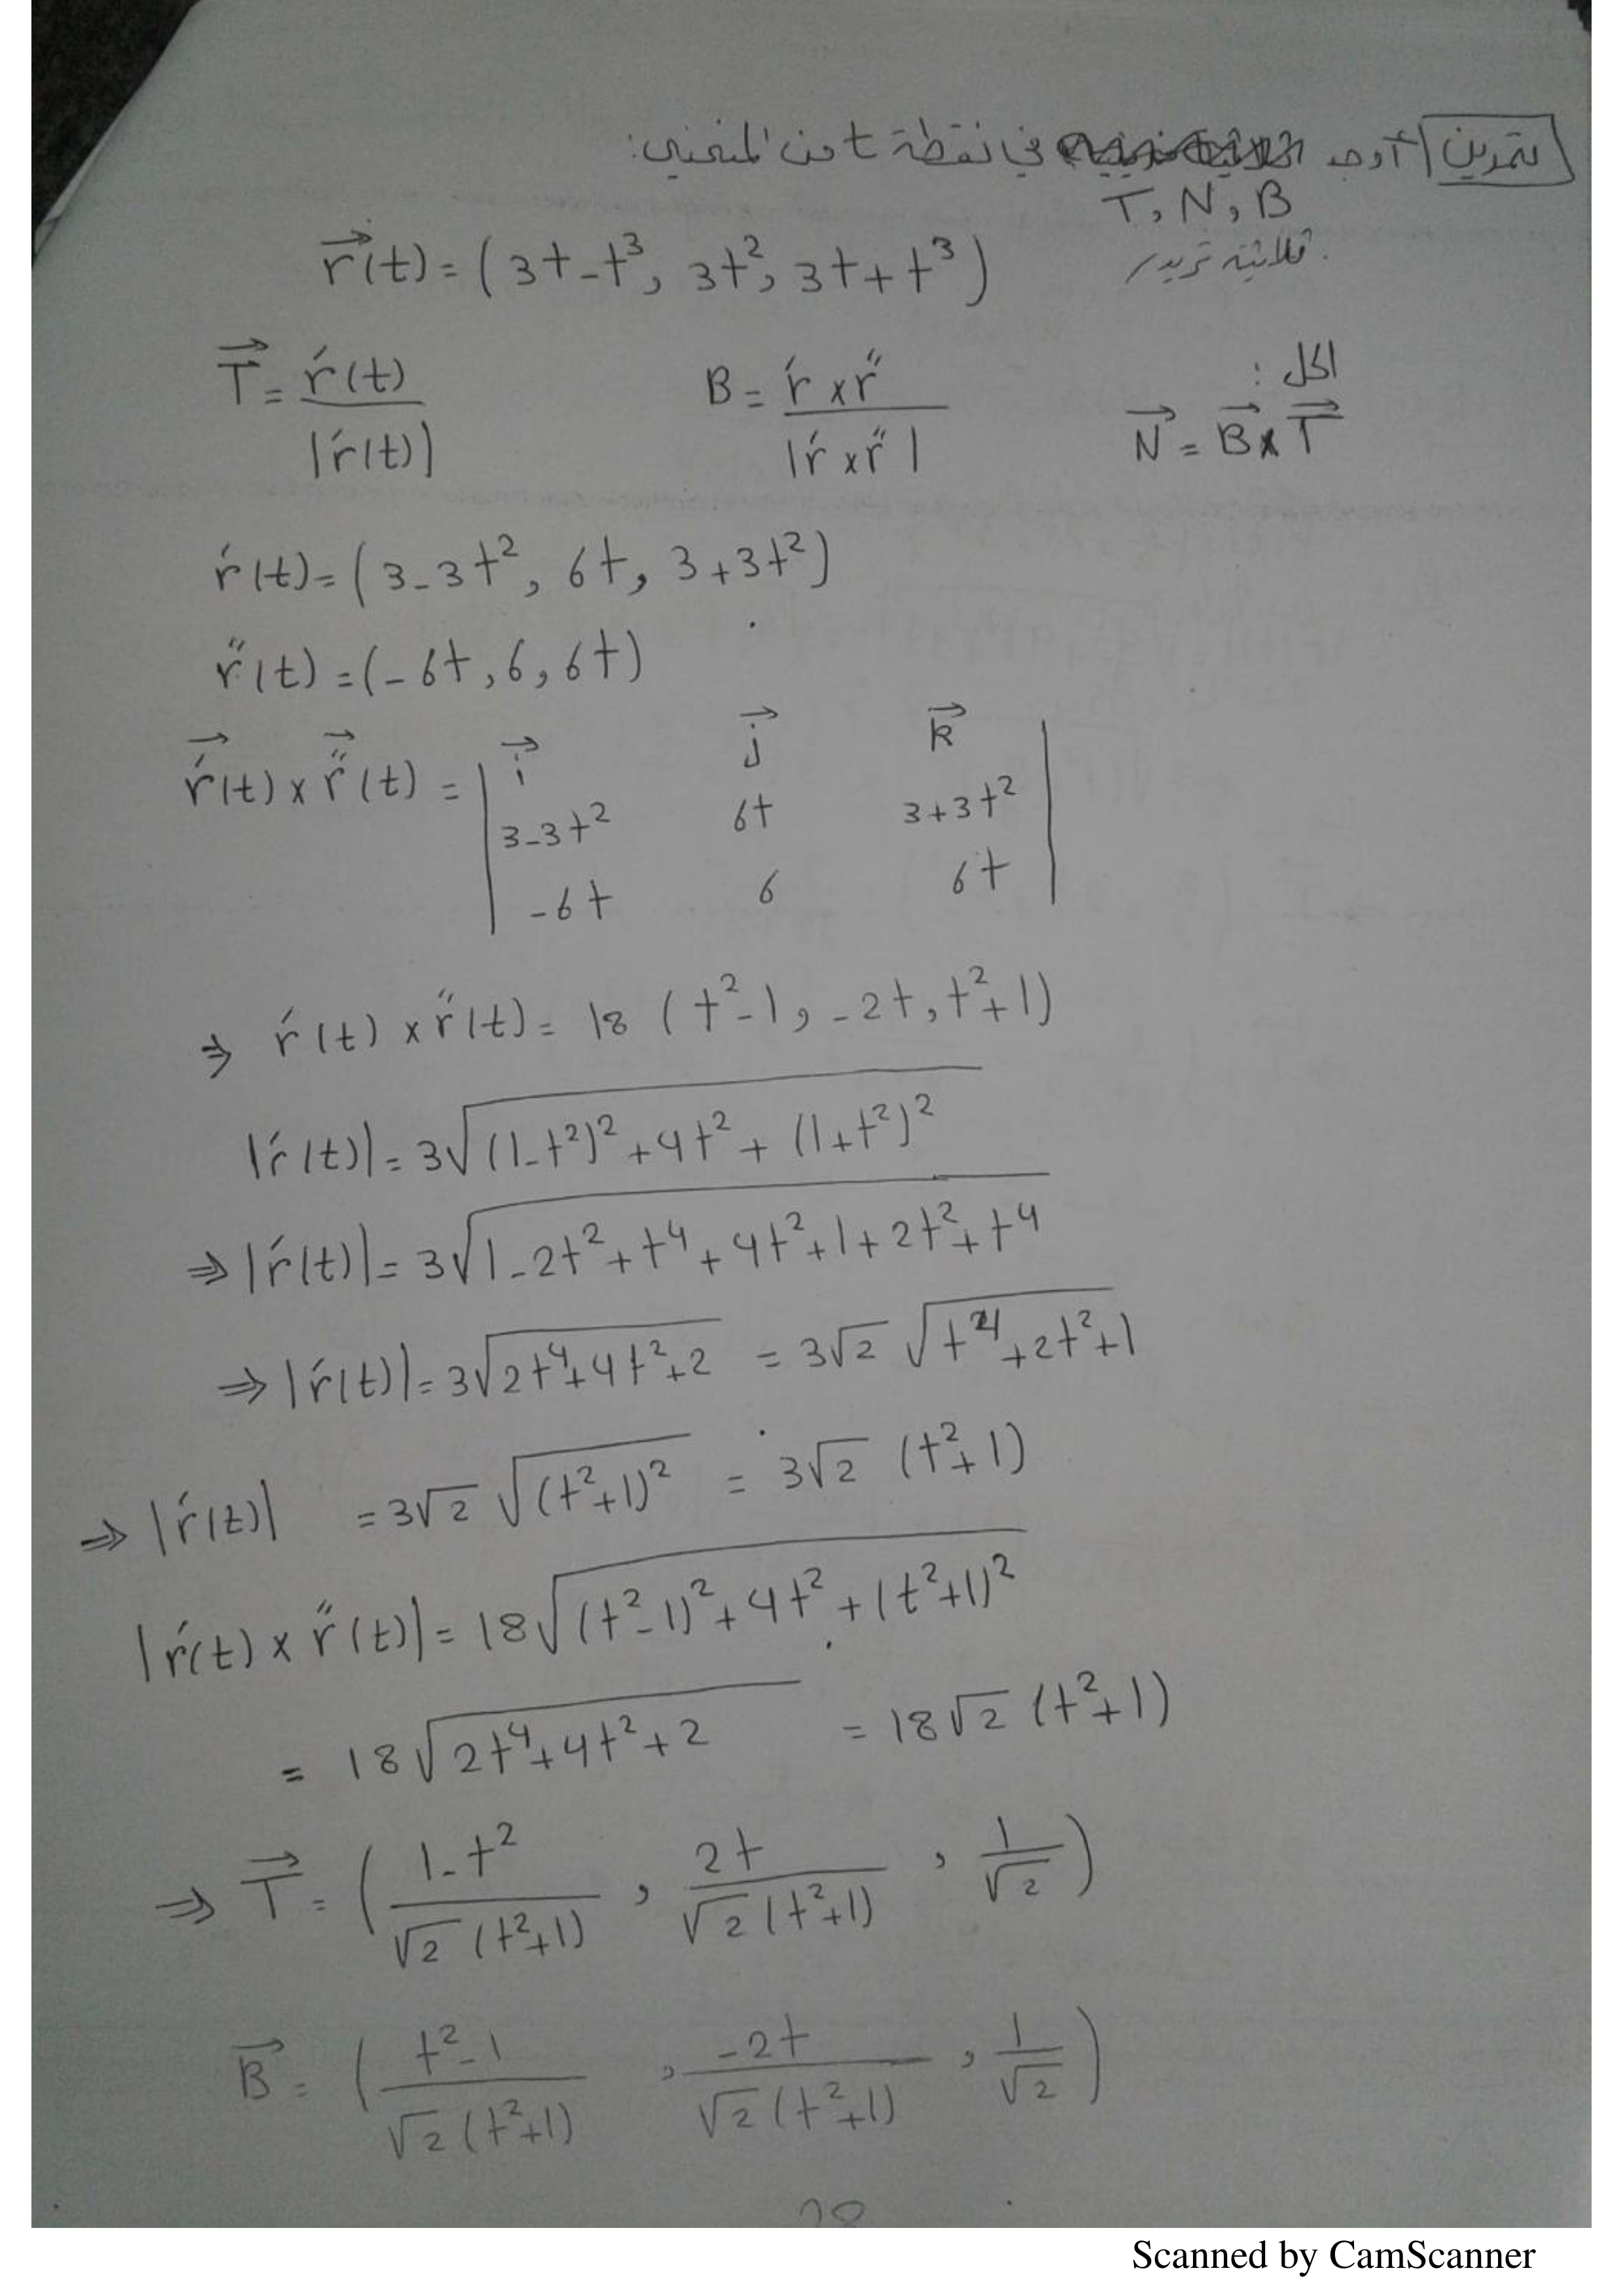 تمرين أوجد في نقطة t من المنحني:
T, N, B
ثلاثية فرينه
r⃗(t) = (3t - t³, 3t², 3t + t³)
الحل:
T⃗ = r′(t) / |r′(t)|    B = r′ × r″ / |r′ × r″|    N⃗ = B⃗ × T⃗
r′(t) = (3 - 3t², 6t, 3 + 3t²)
r″(t) = (-6t, 6, 6t)
r′(t) × r″(t) = | i⃗ j⃗ k⃗
3 - 3t² 6t 3 + 3t²
-6t 6 6t |
⇒ r′(t) × r″(t) = 18 (t² - 1, -2t, t² + 1)
|r′(t)| = 3√((1 - t²)² + 4t² + (1 + t²)²)
⇒ |r′(t)| = 3√(1 - 2t² + t⁴ + 4t² + 1 + 2t² + t⁴)
⇒ |r′(t)| = 3√(2t⁴ + 4t² + 2) = 3√2 √(t⁴ + 2t² + 1)
⇒ |r′(t)| = 3√2 √((t² + 1)²) = 3√2 (t² + 1)
|r′(t) × r″(t)| = 18√((t² - 1)² + 4t² + (t² + 1)²)
= 18√(2t⁴ + 4t² + 2) = 18√2 (t² + 1)
⇒ T⃗ = ((1 - t²) / (√2 (t² + 1)), 2t / (√2 (t² + 1)), 1/√2)
B⃗ = ((t² - 1) / (√2 (t² + 1)), -2t / (√2 (t² + 1)), 1/√2)
Scanned by CamScanner